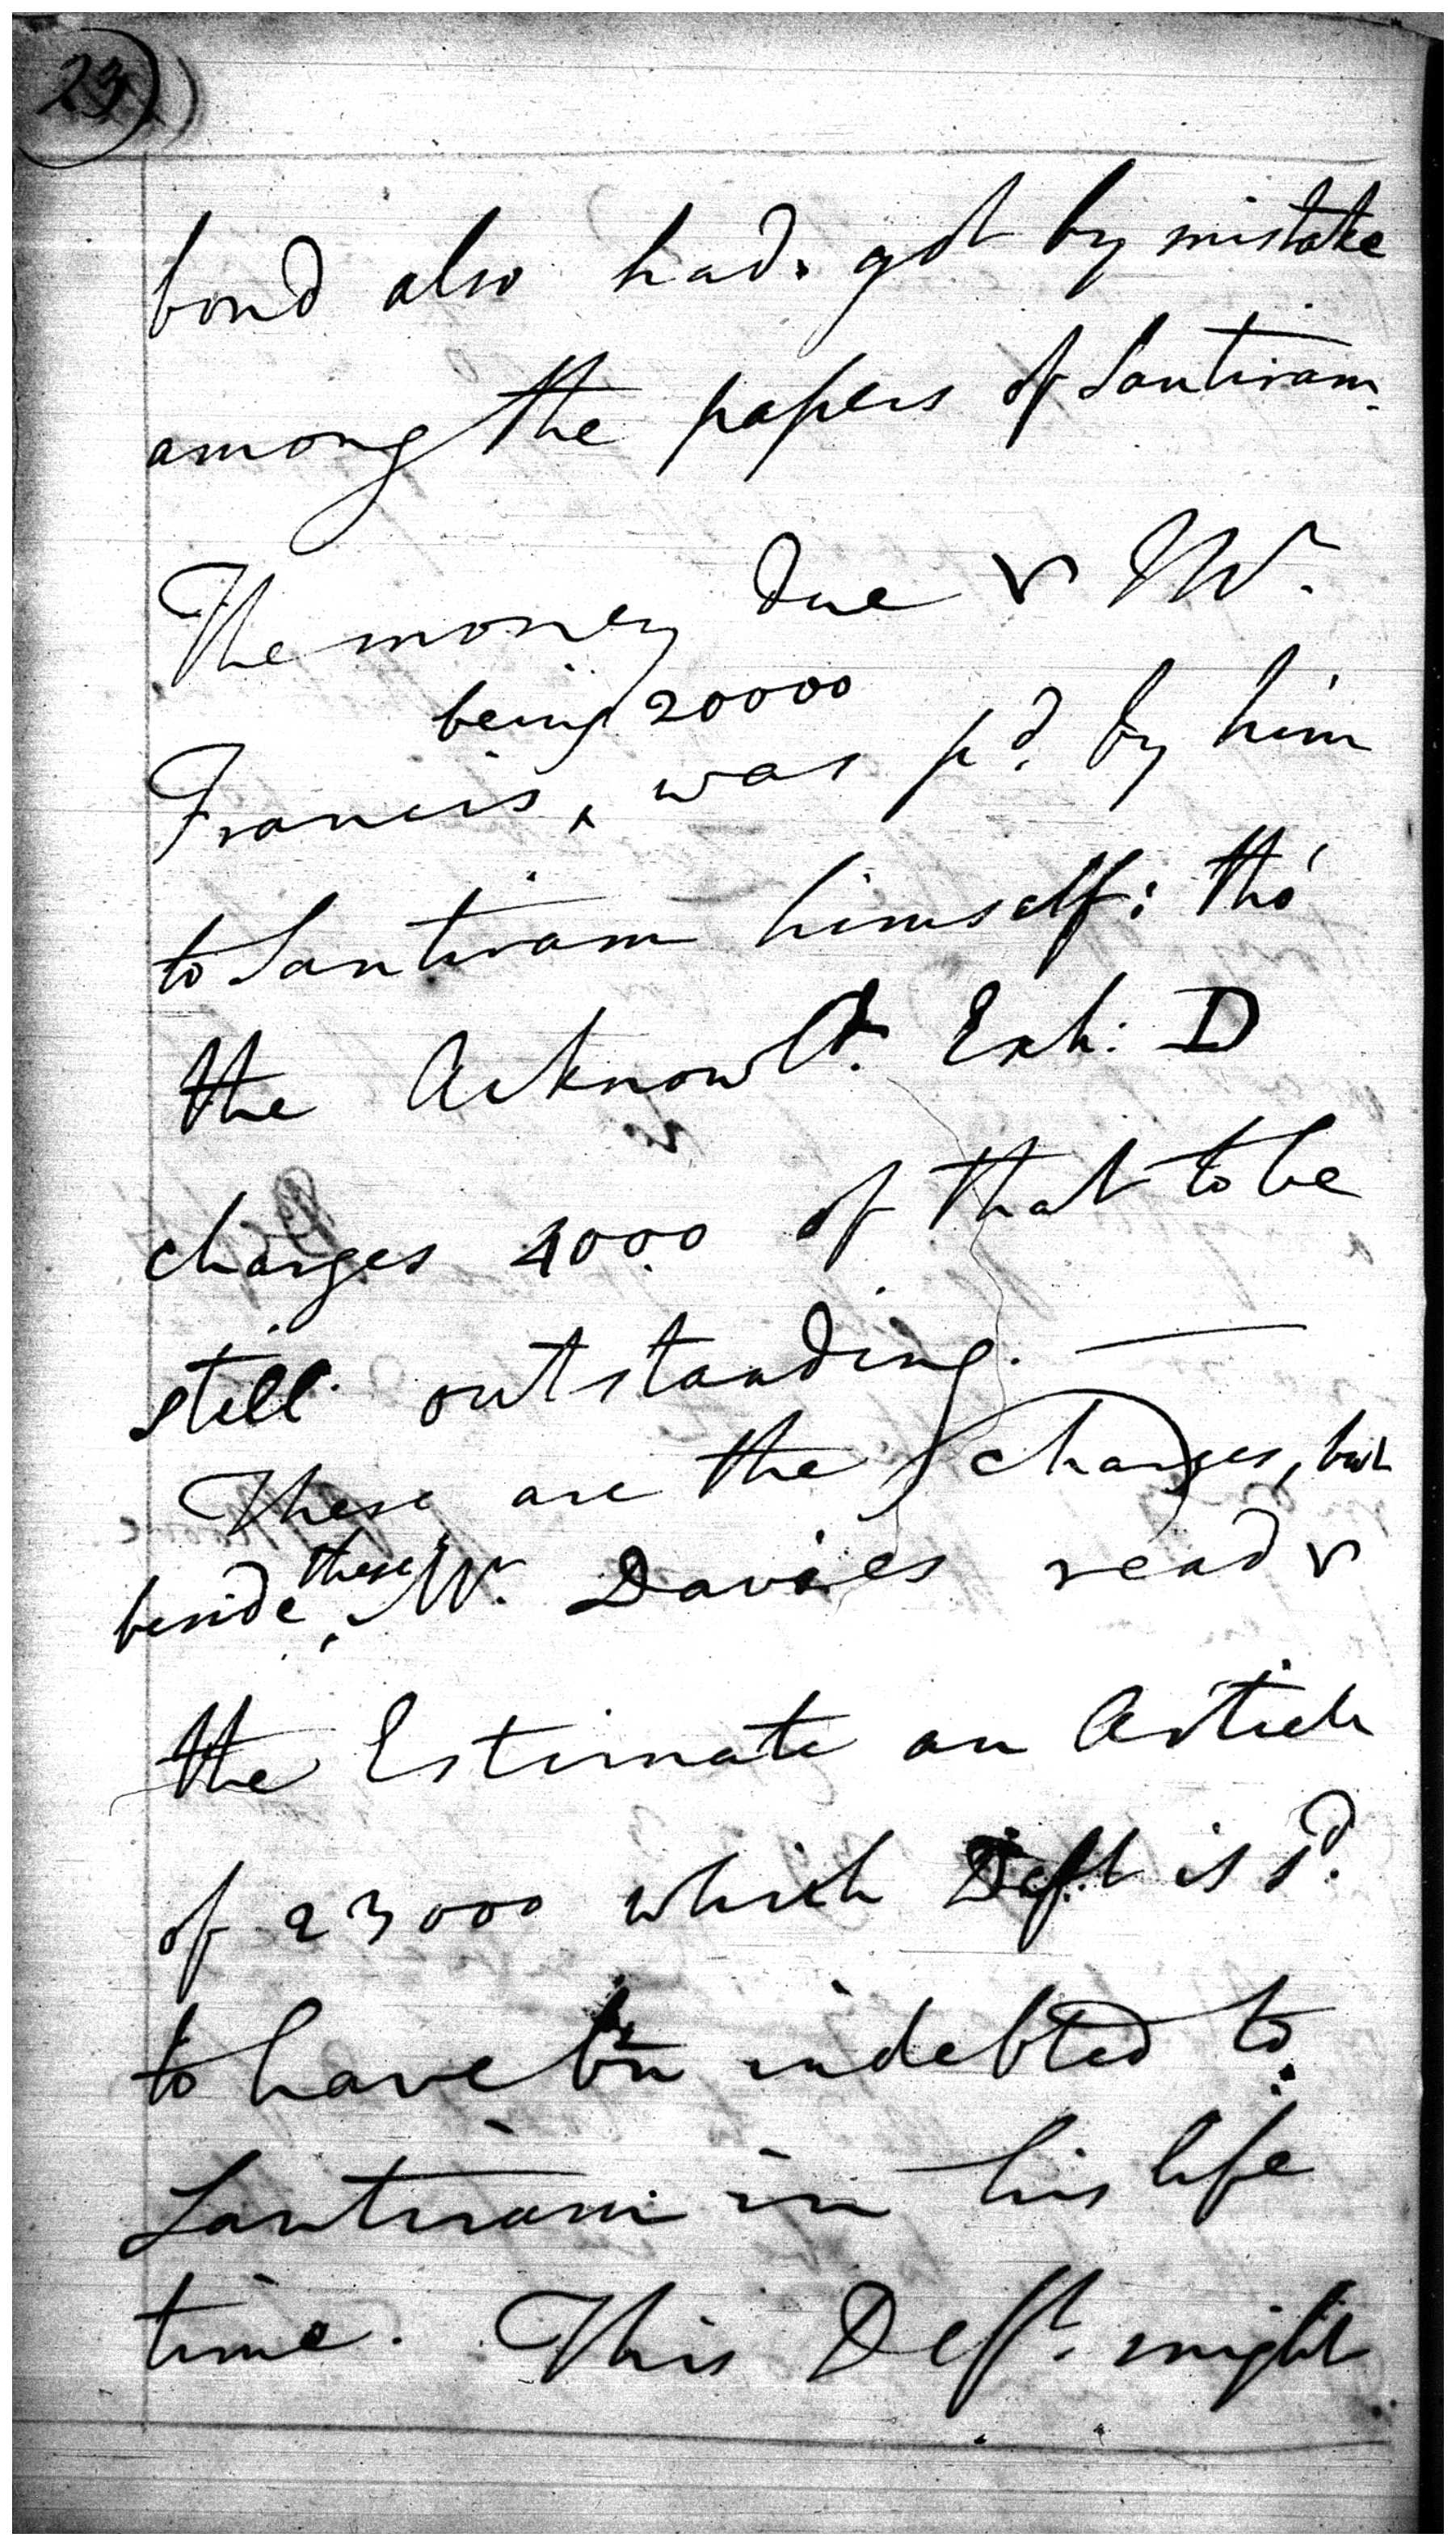 23
bond also had. got by mistake
among the papers of Santiram.
The money due r Mr.
being 20000
Francis, ^ was pd. by him
to Santiram himself: tho'
the Acknowlt. Exh: D
charges 4000 of that to be
still outstanding. —
These are the charges, but
these
beside ^ Mr. Davies read r
the Estimate an Article
of 23000 which Deft is sd.
to have bn indebted to
Santiram in his life
time. This Deft. might